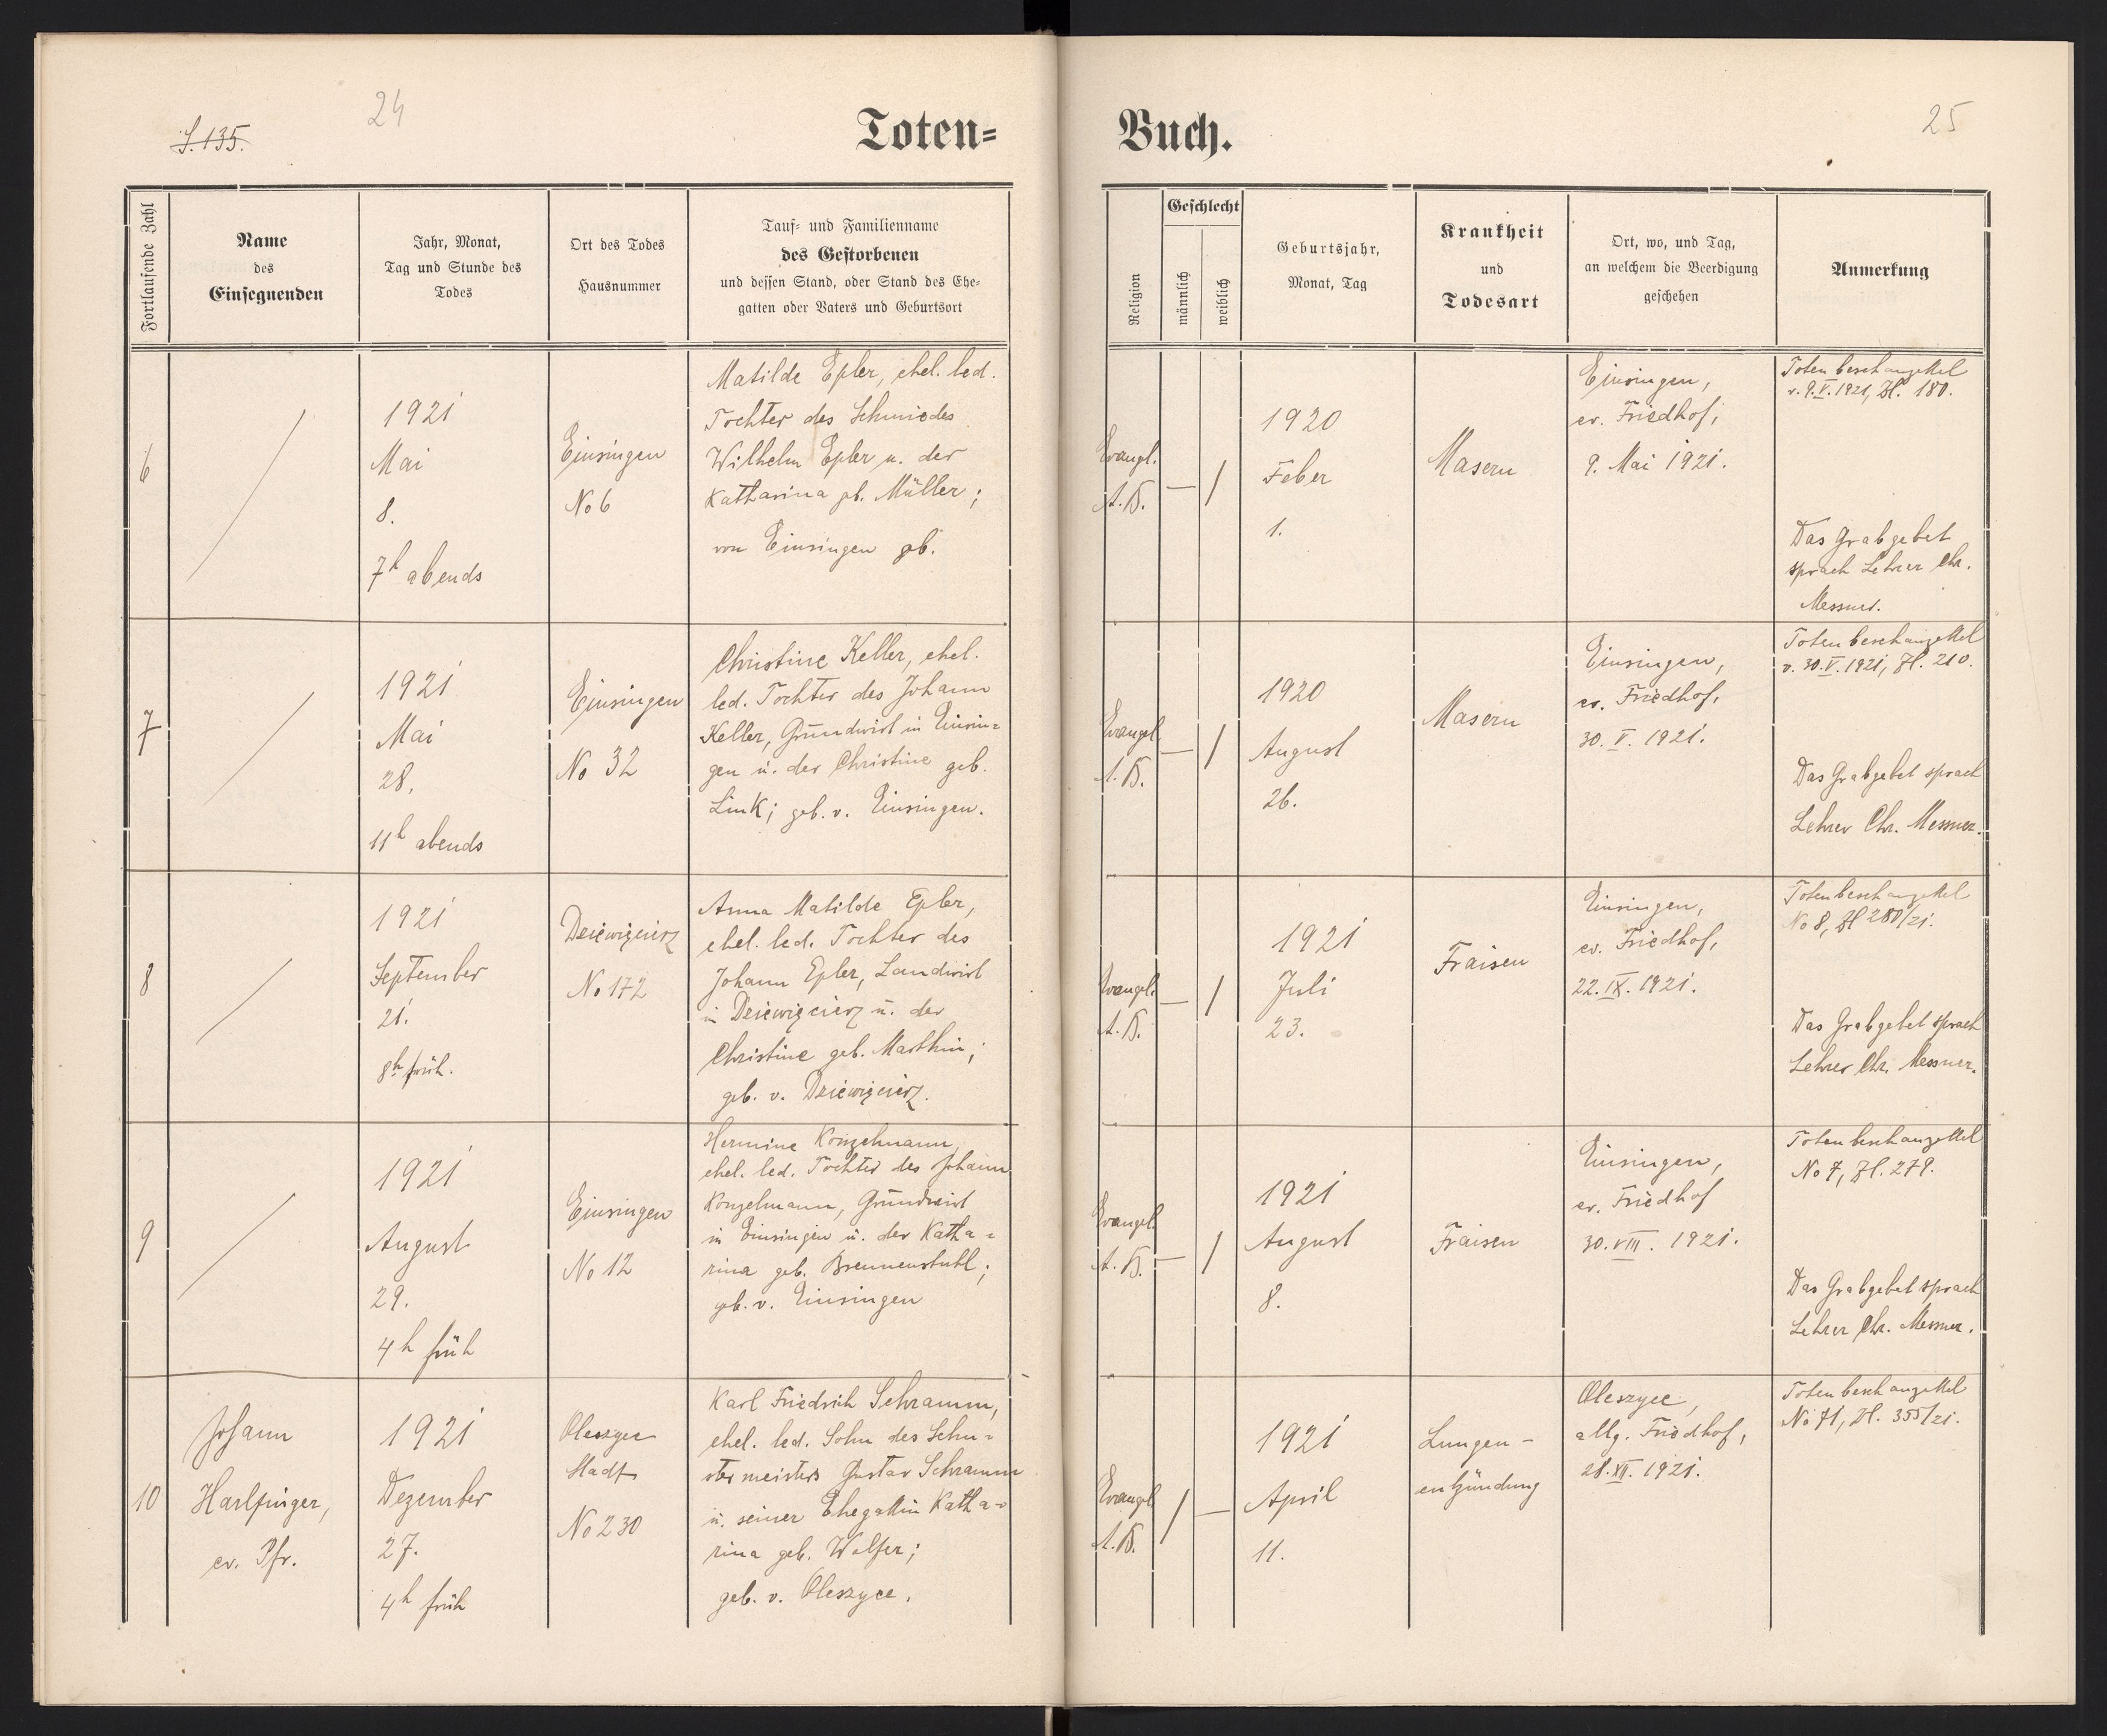 S. 135.
24
Toten=
Buch.
25
Fortlaufende Zahl
Name
des
Einsegnenden
Jahr, Monat,
Tag und Stunde des
Todes
Ort des Todes
Hausnummer
Tauf= und Familienname
des Gestorbenen
und dessen Stand, oder Stand des Ehe=
gatten oder Vaters und Geburtsort
Religion
Geschlecht
männlich
weiblich
Geburtsjahr,
Monat, Tag
Krankheit
und
Todesart
Ort, wo, und Tag,
an welchem die Beerdigung
geschehen
Anmerkung
6
1921
Mai
8.
7h abends
Einsingen
No 6
Matilde Epler, ehel. led.
Tochter des Schmiedes
Wilhelm Epler u. der
Katharina gb. Müller;
von Einsingen gb.
Evangel.
A.B.
— /
1920
Feber
1.
Masern
Einsingen,
ev. Friedhof,
9. Mai 1921.
Totenbeschauzettel
v. 9.V.1921, Zl. 180.
Das Grabgebet
sprach Lehrer Chr.
Messner.
7
1921
Mai
28.
11h abends
Einsingen
No 32
Christine Keller, ehel.
led. Tochter des Johann
Keller, Grundwirt in Einsin=
gen u. der Christine geb.
Link; geb. v. Einsingen.
Evangel.
A.B.
— /
1920
August
26.
Masern
Einsingen,
ev. Friedhof,
30. V. 1921.
Totenbeschauzettel
v. 30.V.1921, Zl. 210.
Das Grabgebet sprach
Lehrer Chr. Messner.
8
1921
September
21.
8h früh.
Dziewięcierz
No 172
Anna Matilde Epler,
ehel. led. Tochter des
Johann Epler, Landwirt
in Dziewięcierz u. der
Christine geb. Marthin;
geb. v. Dziewięcierz.
Evangel.
A.B.
— /
1921
Juli
23.
Fraisen
Einsingen,
ev. Friedhof,
22. IX. 1921.
Totenbeschauzettel
No 8, Zl 280/21.
Das Grabgebet sprach
Lehrer Chr. Messner.
9
1921
August
29.
4h früh
Einsingen
No 12
Hermine Konzelmann,
ehel. led. Tochter des Johann
Konzelmann, Grundwirt
in Einsingen u. der Katha=
rina geb. Brennenstuhl;
geb. v. Einsingen
Evangel.
A.B.
— /
1921
August
8.
Fraisen
Einsingen,
ev. Friedhof
30. VIII. 1921.
Totenbeschauzettel
No 7, Zl. 279.
Das Grabgebet sprach
Lehrer Chr. Messner.
10
Johann
Harlfinger,
ev. Pfr.
1921
Dezember
27.
4h früh
Oleszyce
Stadt
No 230
Karl Friedrich Schramm,
ehel. led. Sohn des Schu=
stermeisters Gustav Schramm
u. seiner Ehegattin Katha=
rina geb. Wolfer;
geb. v. Oleszyce.
Evangel.
A.B.
/ —
1921
April
11.
Lungen=
entzündung
Oleszyce,
allg. Friedhof,
28. XII. 1921.
Totenbeschauzettel
No 71, Zl. 355/21.